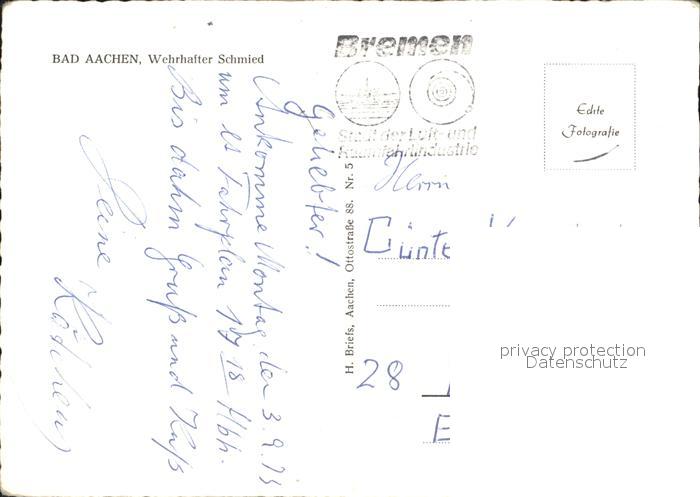 BAD AACHEN, Wehrhafter Schmied
Geliebter!
Ankomme Montag den 3.9.73
um lt Fahrplan 1718 Hbh.
Bis dahin Gruß und Kuß
Deine Käthchen
H. Briefs, Aachen, Ottostraße 88. Nr. 5
Bremen
Stadt der Luft- und
Raumfahrtindustrie
Echte
Fotografie
Herrn
Günte
28
privacy protection
Datenschutz